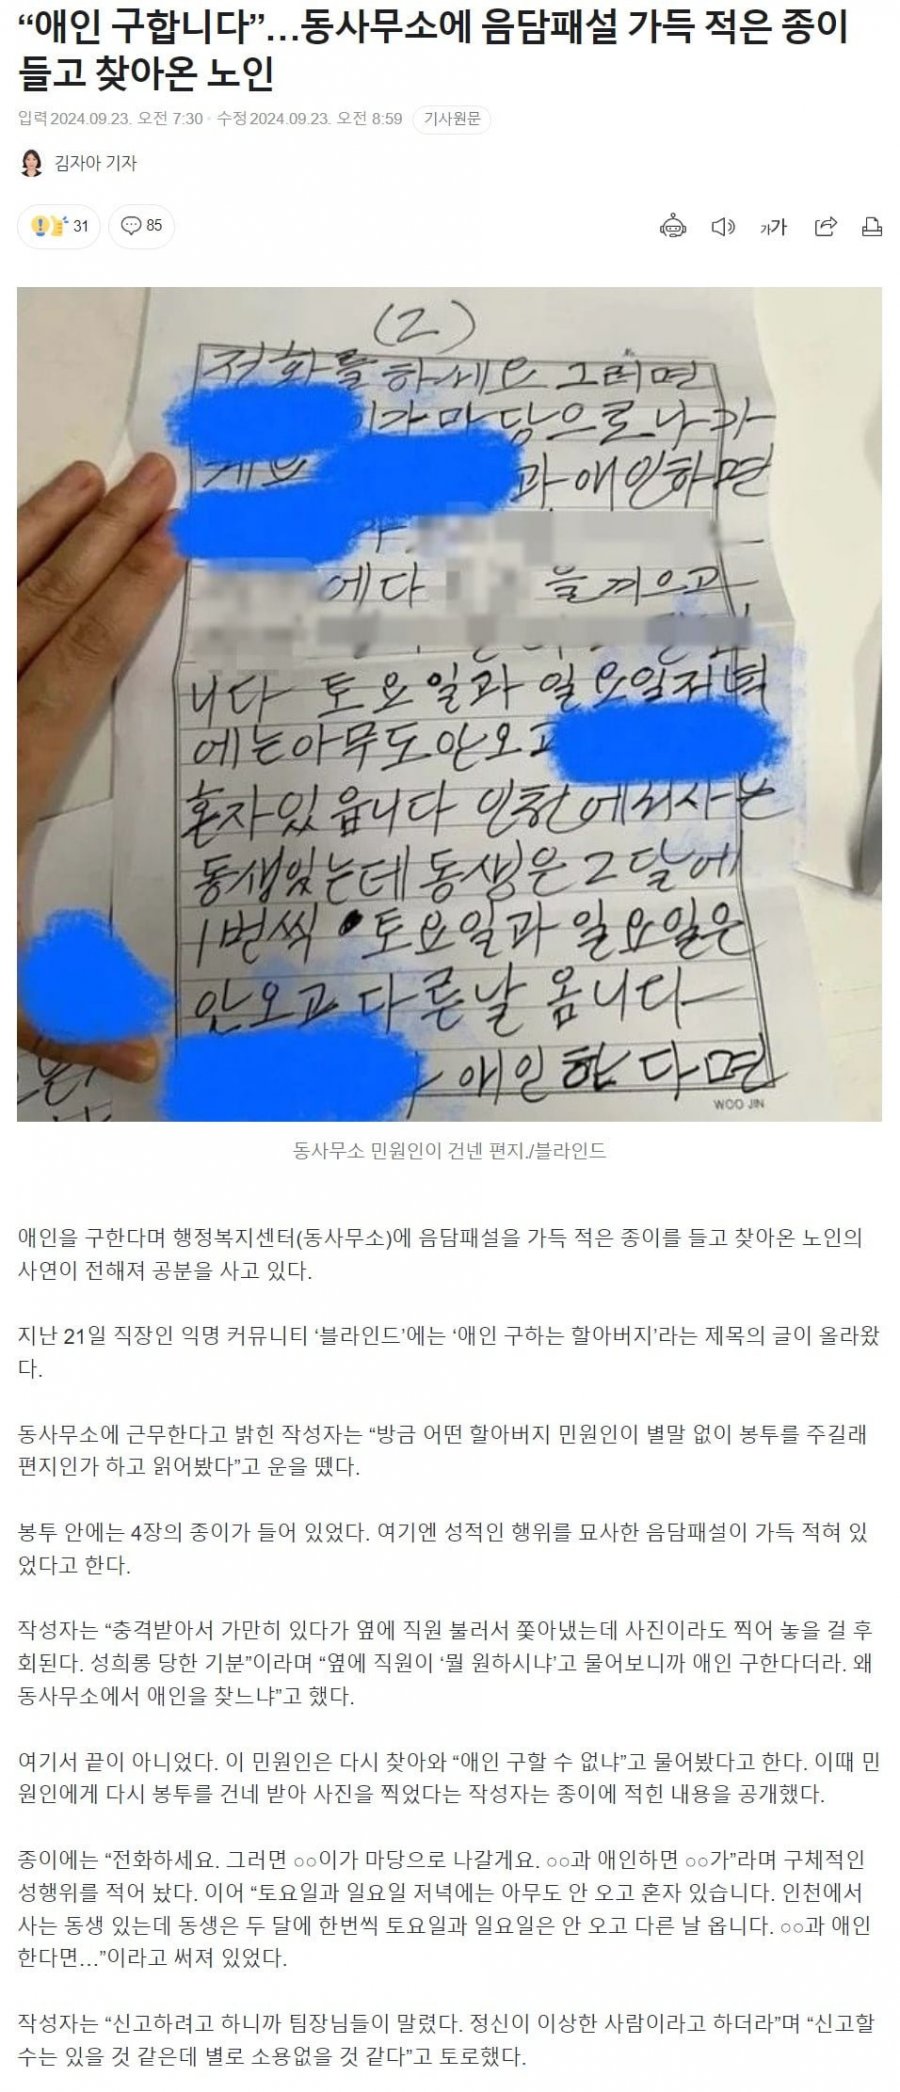 “애인 구합니다”…동사무소에 음담패설 가득 적은 종이
들고 찾아온 노인
입력 2024.09.23. 오전 7:30 · 수정 2024.09.23. 오전 8:59 기사원문
김자아 기자
31 85
가가
(2)
전화를 하세요 그러면
이가 마당으로 나가
게요
과 애인하면
가
에다 늘끼으고
니다 토요일과 일요일저녁
에는 아무도 안오고
혼자있읍니다 인천에서사는
동생있는데 동생은 2달에
1번씩 토요일과 일요일은
안오고 다른날 옵니다
애인한다면
WOO JIN
동사무소 민원인이 건넨 편지./블라인드
애인을 구한다며 행정복지센터(동사무소)에 음담패설을 가득 적은 종이를 들고 찾아온 노인의
사연이 전해져 공분을 사고 있다.
지난 21일 직장인 익명 커뮤니티 ‘블라인드’에는 ‘애인 구하는 할아버지’라는 제목의 글이 올라왔
다.
동사무소에 근무한다고 밝힌 작성자는 “방금 어떤 할아버지 민원인이 별말 없이 봉투를 주길래
편지인가 하고 읽어봤다”고 운을 뗐다.
봉투 안에는 4장의 종이가 들어 있었다. 여기엔 성적인 행위를 묘사한 음담패설이 가득 적혀 있
었다고 한다.
작성자는 “충격받아서 가만히 있다가 옆에 직원 불러서 쫓아냈는데 사진이라도 찍어 놓을 걸 후
회된다. 성희롱 당한 기분”이라며 “옆에 직원이 ‘뭘 원하시냐’고 물어보니까 애인 구한다더라. 왜
동사무소에서 애인을 찾느냐”고 했다.
여기서 끝이 아니었다. 이 민원인은 다시 찾아와 “애인 구할 수 없냐”고 물어봤다고 한다. 이때 민
원인에게 다시 봉투를 건네 받아 사진을 찍었다는 작성자는 종이에 적힌 내용을 공개했다.
종이에는 “전화하세요. 그러면 ○○이가 마당으로 나갈게요. ○○과 애인하면 ○○가”라며 구체적인
성행위를 적어 놨다. 이어 “토요일과 일요일 저녁에는 아무도 안 오고 혼자 있습니다. 인천에서
사는 동생 있는데 동생은 두 달에 한번씩 토요일과 일요일은 안 오고 다른 날 옵니다. ○○과 애인
한다면…”이라고 써져 있었다.
작성자는 “신고하려고 하니까 팀장님들이 말렸다. 정신이 이상한 사람이라고 하더라”며 “신고할
수는 있을 것 같은데 별로 소용없을 것 같다”고 토로했다.